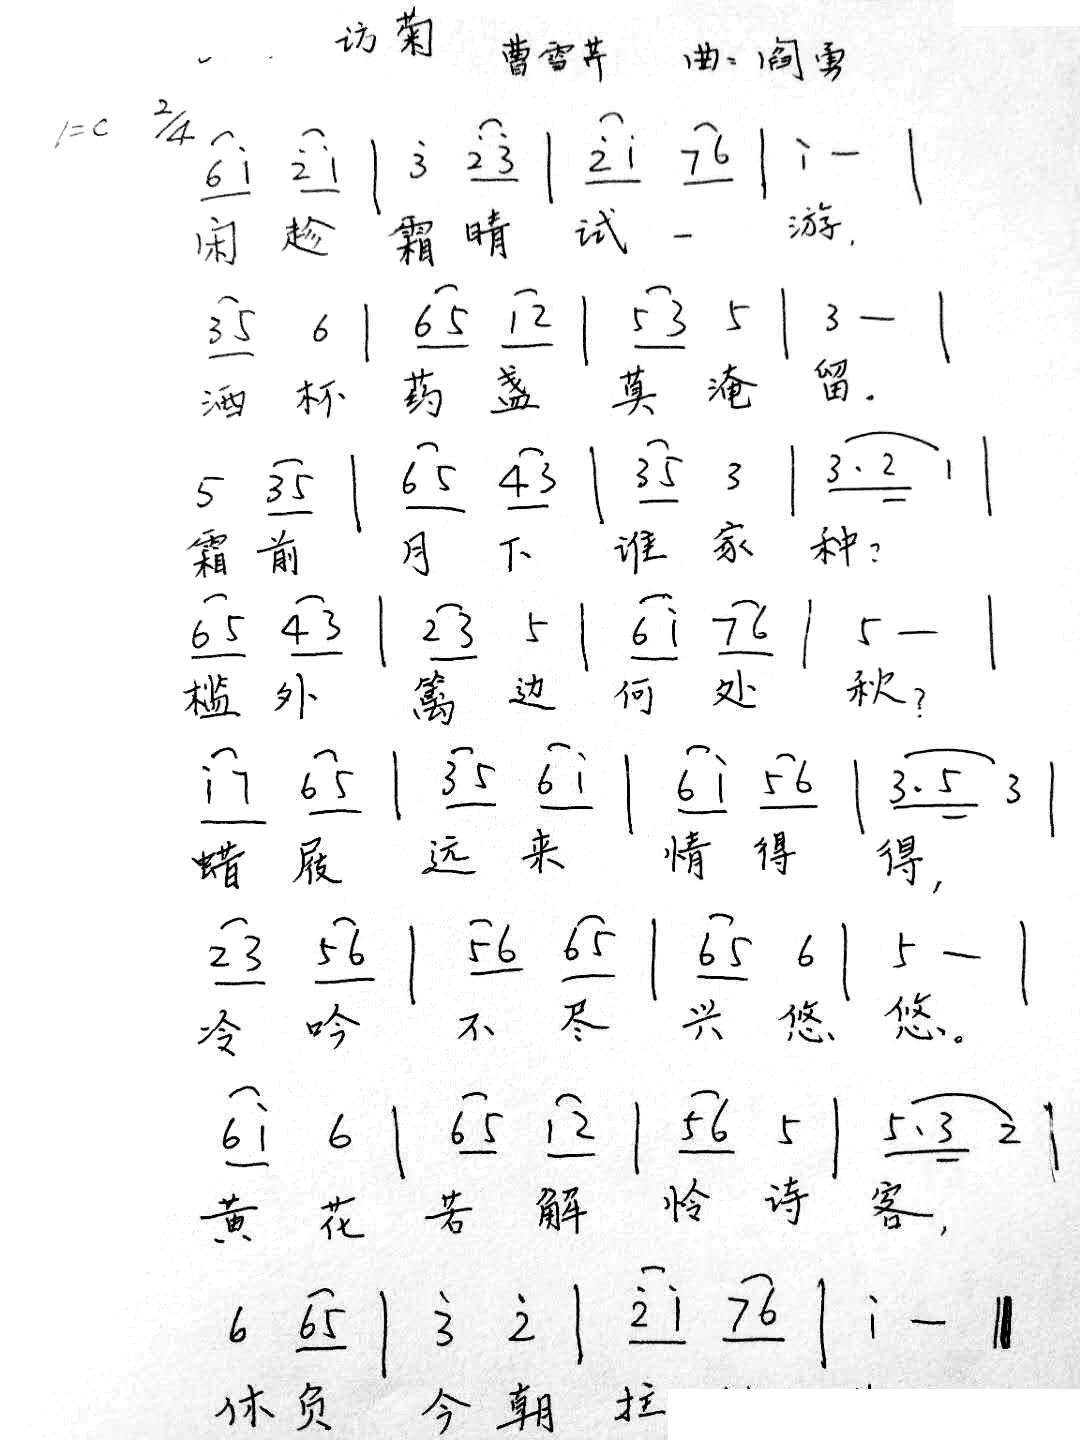 访菊 曹雪芹 曲:阎勇
1=C 2/4
6i̇ 2̇i̇ | 3̇ 2̇3̇ | 2̇i̇ 76 | i̇ — |
闲趁霜晴试一游,
35 6 | 65 i̇2 | 53 5 | 3 — |
酒杯药盏莫淹留。
5 35 | 65 43 | 35 3 | 3·2 1 |
霜前月下谁家种?
65 43 | 23 5 | 6i̇ 76 | 5 — |
槛外篱边何处秋?
i̇7 65 | 35 6i̇ | 6i̇ 56 | 3·5 3 |
蜡屐远来情得得,
23 56 | 56 65 | 65 6 | 5 — |
冷吟不尽兴悠悠。
6i̇ 6 | 65 i̇2 | 56 5 | 5·3 2 |
黄花若解怜诗客,
6 65 | 3̇ 2̇ | 2̇i̇ 76 | i̇ — ‖
休负今朝拄